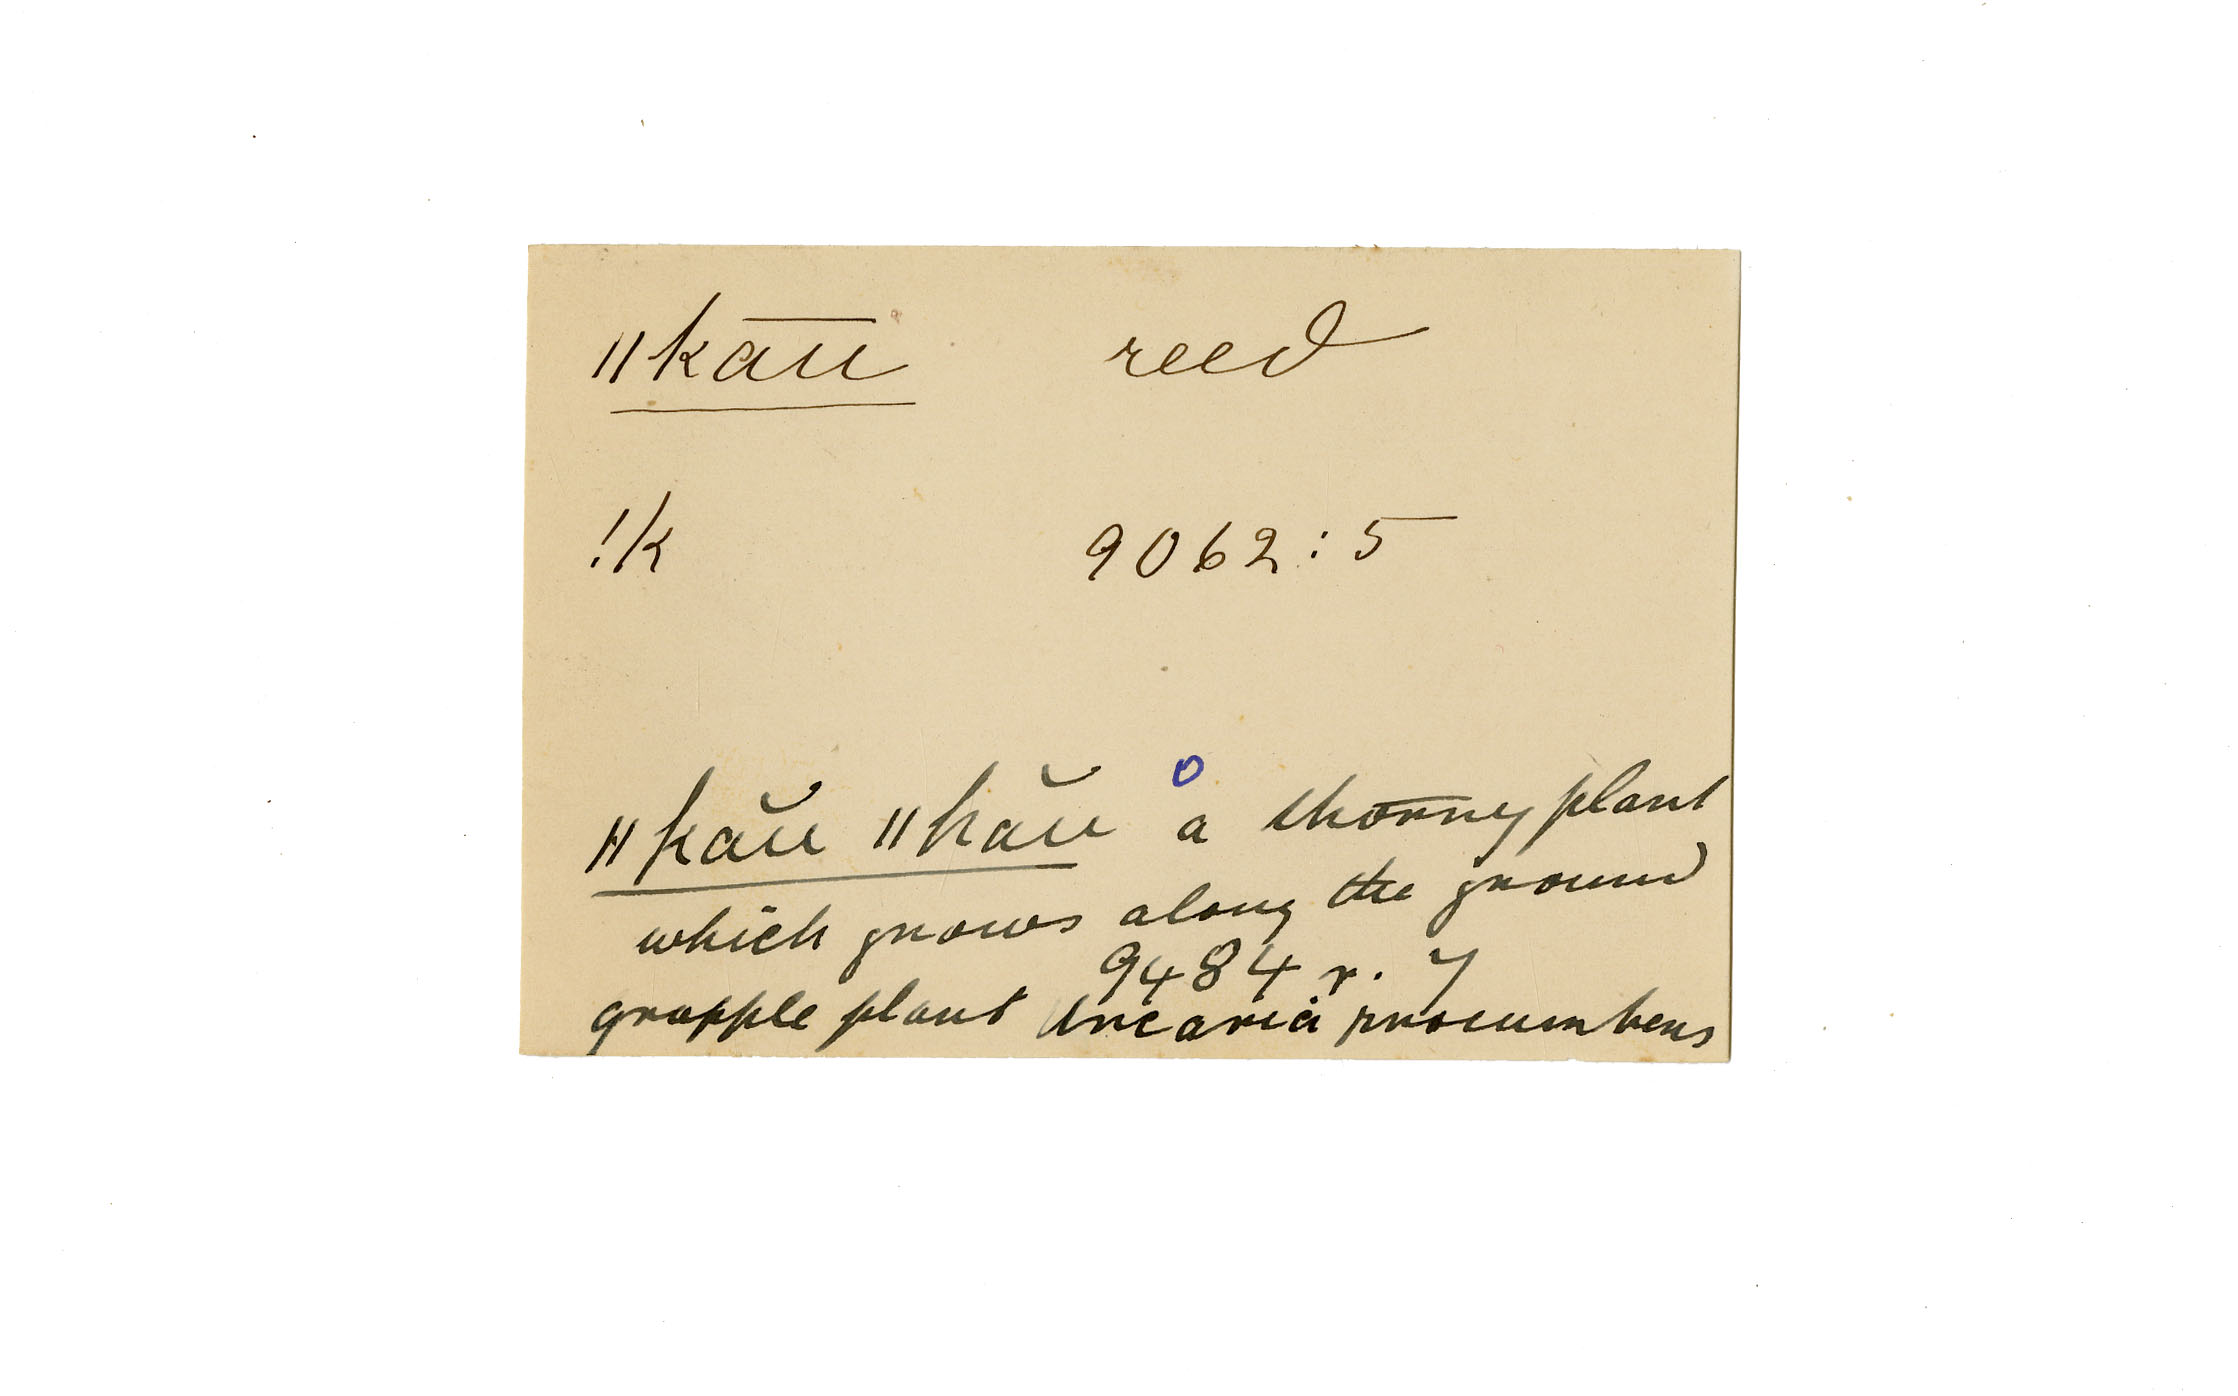 ǁkāū reed
!k 9062:5
ǁkaŭ ǁkaŭ a thorny plant
which grows along the ground
9484 r. 7
grapple plant Uncaria procumbens